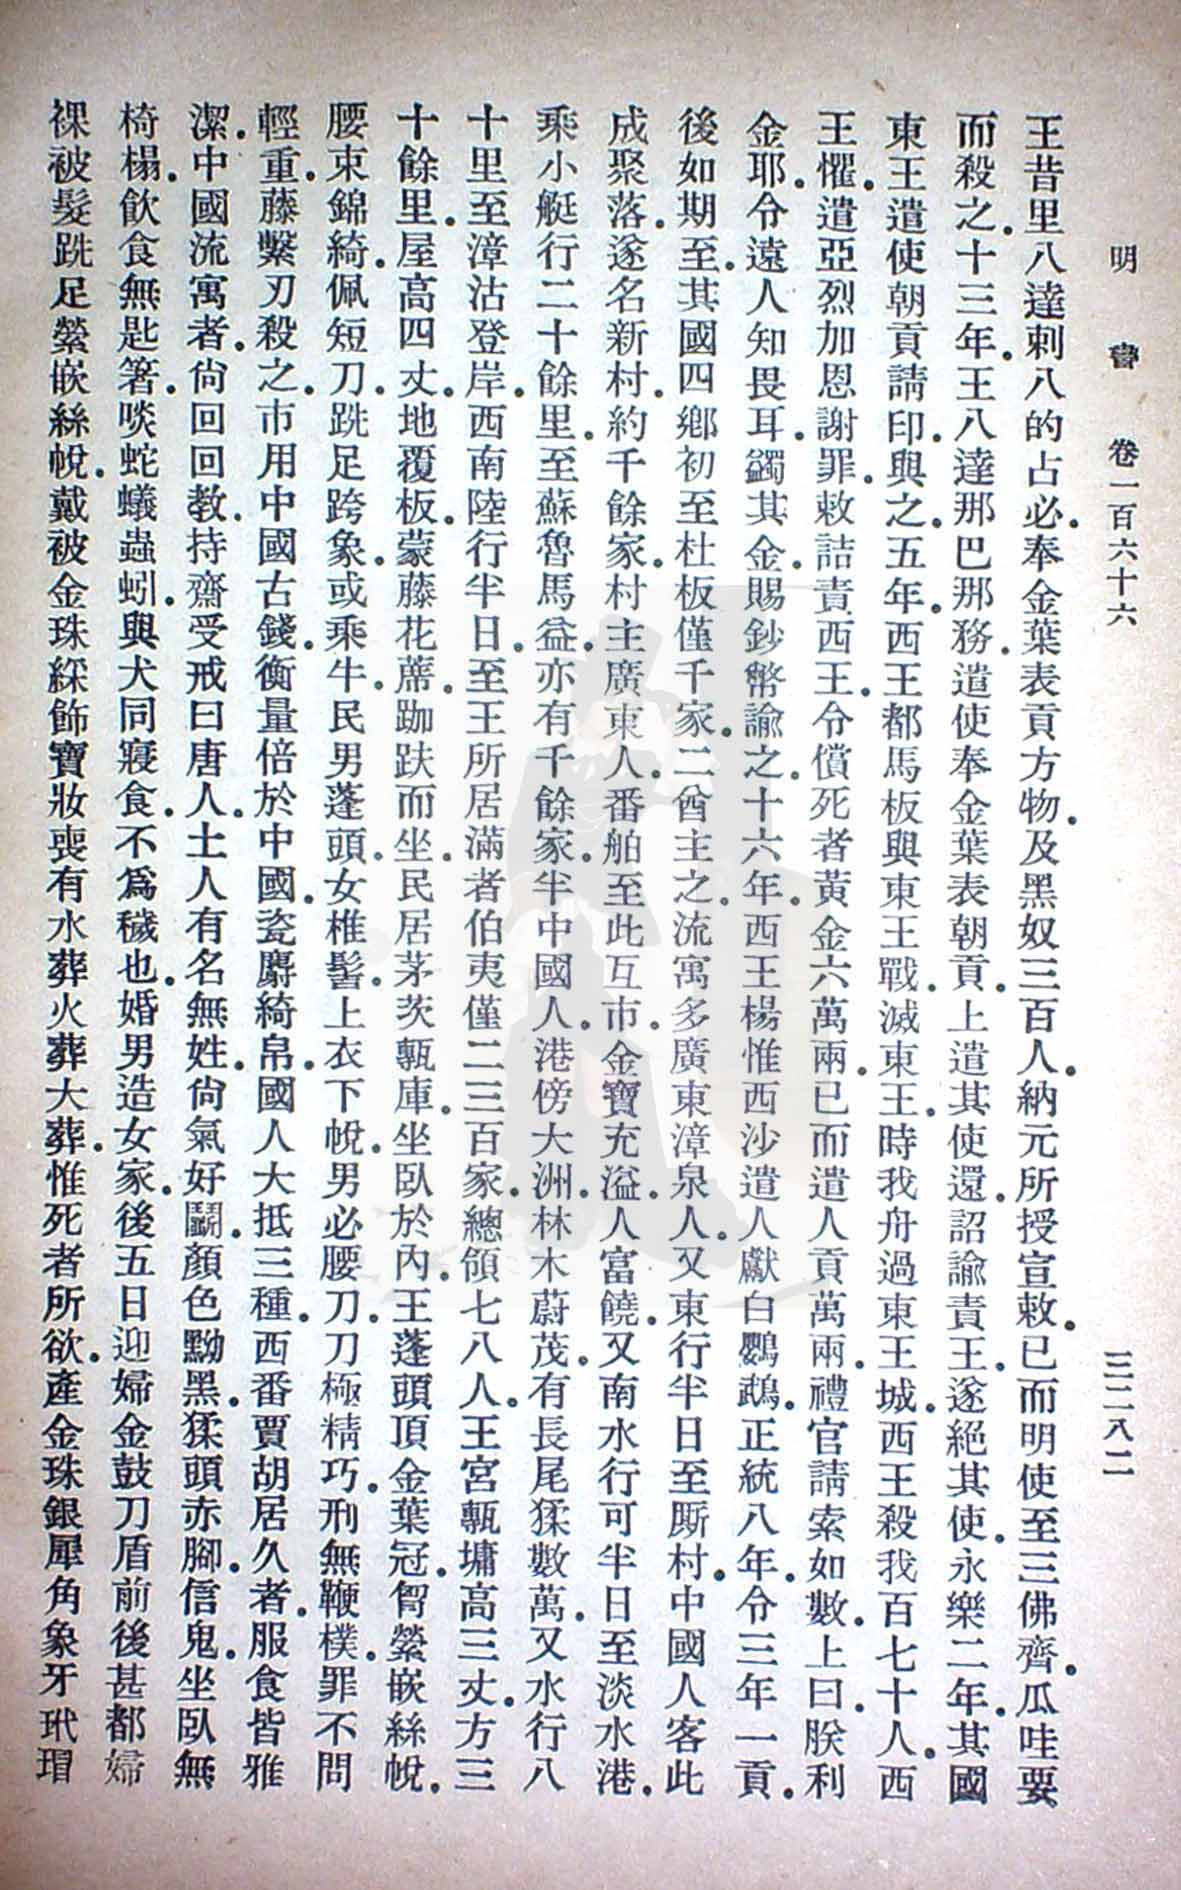 明書 卷一百六十六 三二八二
王昔里八達剌八的占必奉金葉表貢方物及黑奴三百人納元所授宣敕已而明使至三佛齊瓜哇要
而殺之十三年王八達那巴那務遣使奉金葉表朝貢上遣其使還詔諭責王遂絕其使永樂二年其國
東王遣使朝貢請印與之五年西王都馬板興東王戰滅東王時我舟過東王城西王殺我百七十人西
王懼遣亞烈加恩謝罪敕詰責西王令償死者黃金六萬兩已而遣人貢萬兩禮官請索如數上曰朕利
金耶令遠人知畏耳蠲其金賜鈔幣諭之十六年西王楊惟西沙遣人獻白鸚鵡正統八年令三年一貢
後如期至其國四鄉初至杜板僅千家二酋主之流寓多廣東漳泉人又東行半日至厮村中國人客此
成聚落遂名新村約千餘家村主廣東人番舶至此互市金寶充溢人富饒又南水行可半日至淡水港
乘小艇行二十餘里至蘇魯馬益亦有千餘家半中國人港傍大洲林木蔚茂有長尾猱數萬又水行八
十里至漳沽登岸西南陸行半日至王所居滿者伯夷僅二三百家總領七八人王宮甎墉高三丈方三
十餘里屋高四丈地覆板蒙藤花蓆跏趺而坐民居茅茨甎庫坐臥於內王蓬頭頂金葉冠胷縈嵌絲帨
腰束錦綺佩短刀跣足跨象或乘牛民男蓬頭女椎髻上衣下帨男必腰刀刀極精巧刑無鞭樸罪不問
輕重藤繫刃殺之市用中國古錢衡量倍於中國瓷麝綺帛國人大抵三種西番賈胡居久者服食皆雅
潔中國流寓者尙回回教持齋受戒曰唐人土人有名無姓尙氣好鬭顏色黝黑猱頭赤腳信鬼坐臥無
椅榻飲食無匙箸啖蛇蟻蟲蚓與犬同寢食不爲穢也婚男造女家後五日迎婦金鼓刀盾前後甚都婦
裸被髮跣足縈嵌絲帨戴被金珠綵飾寶妝喪有水葬火葬大葬惟死者所欲產金珠銀犀角象牙玳瑁